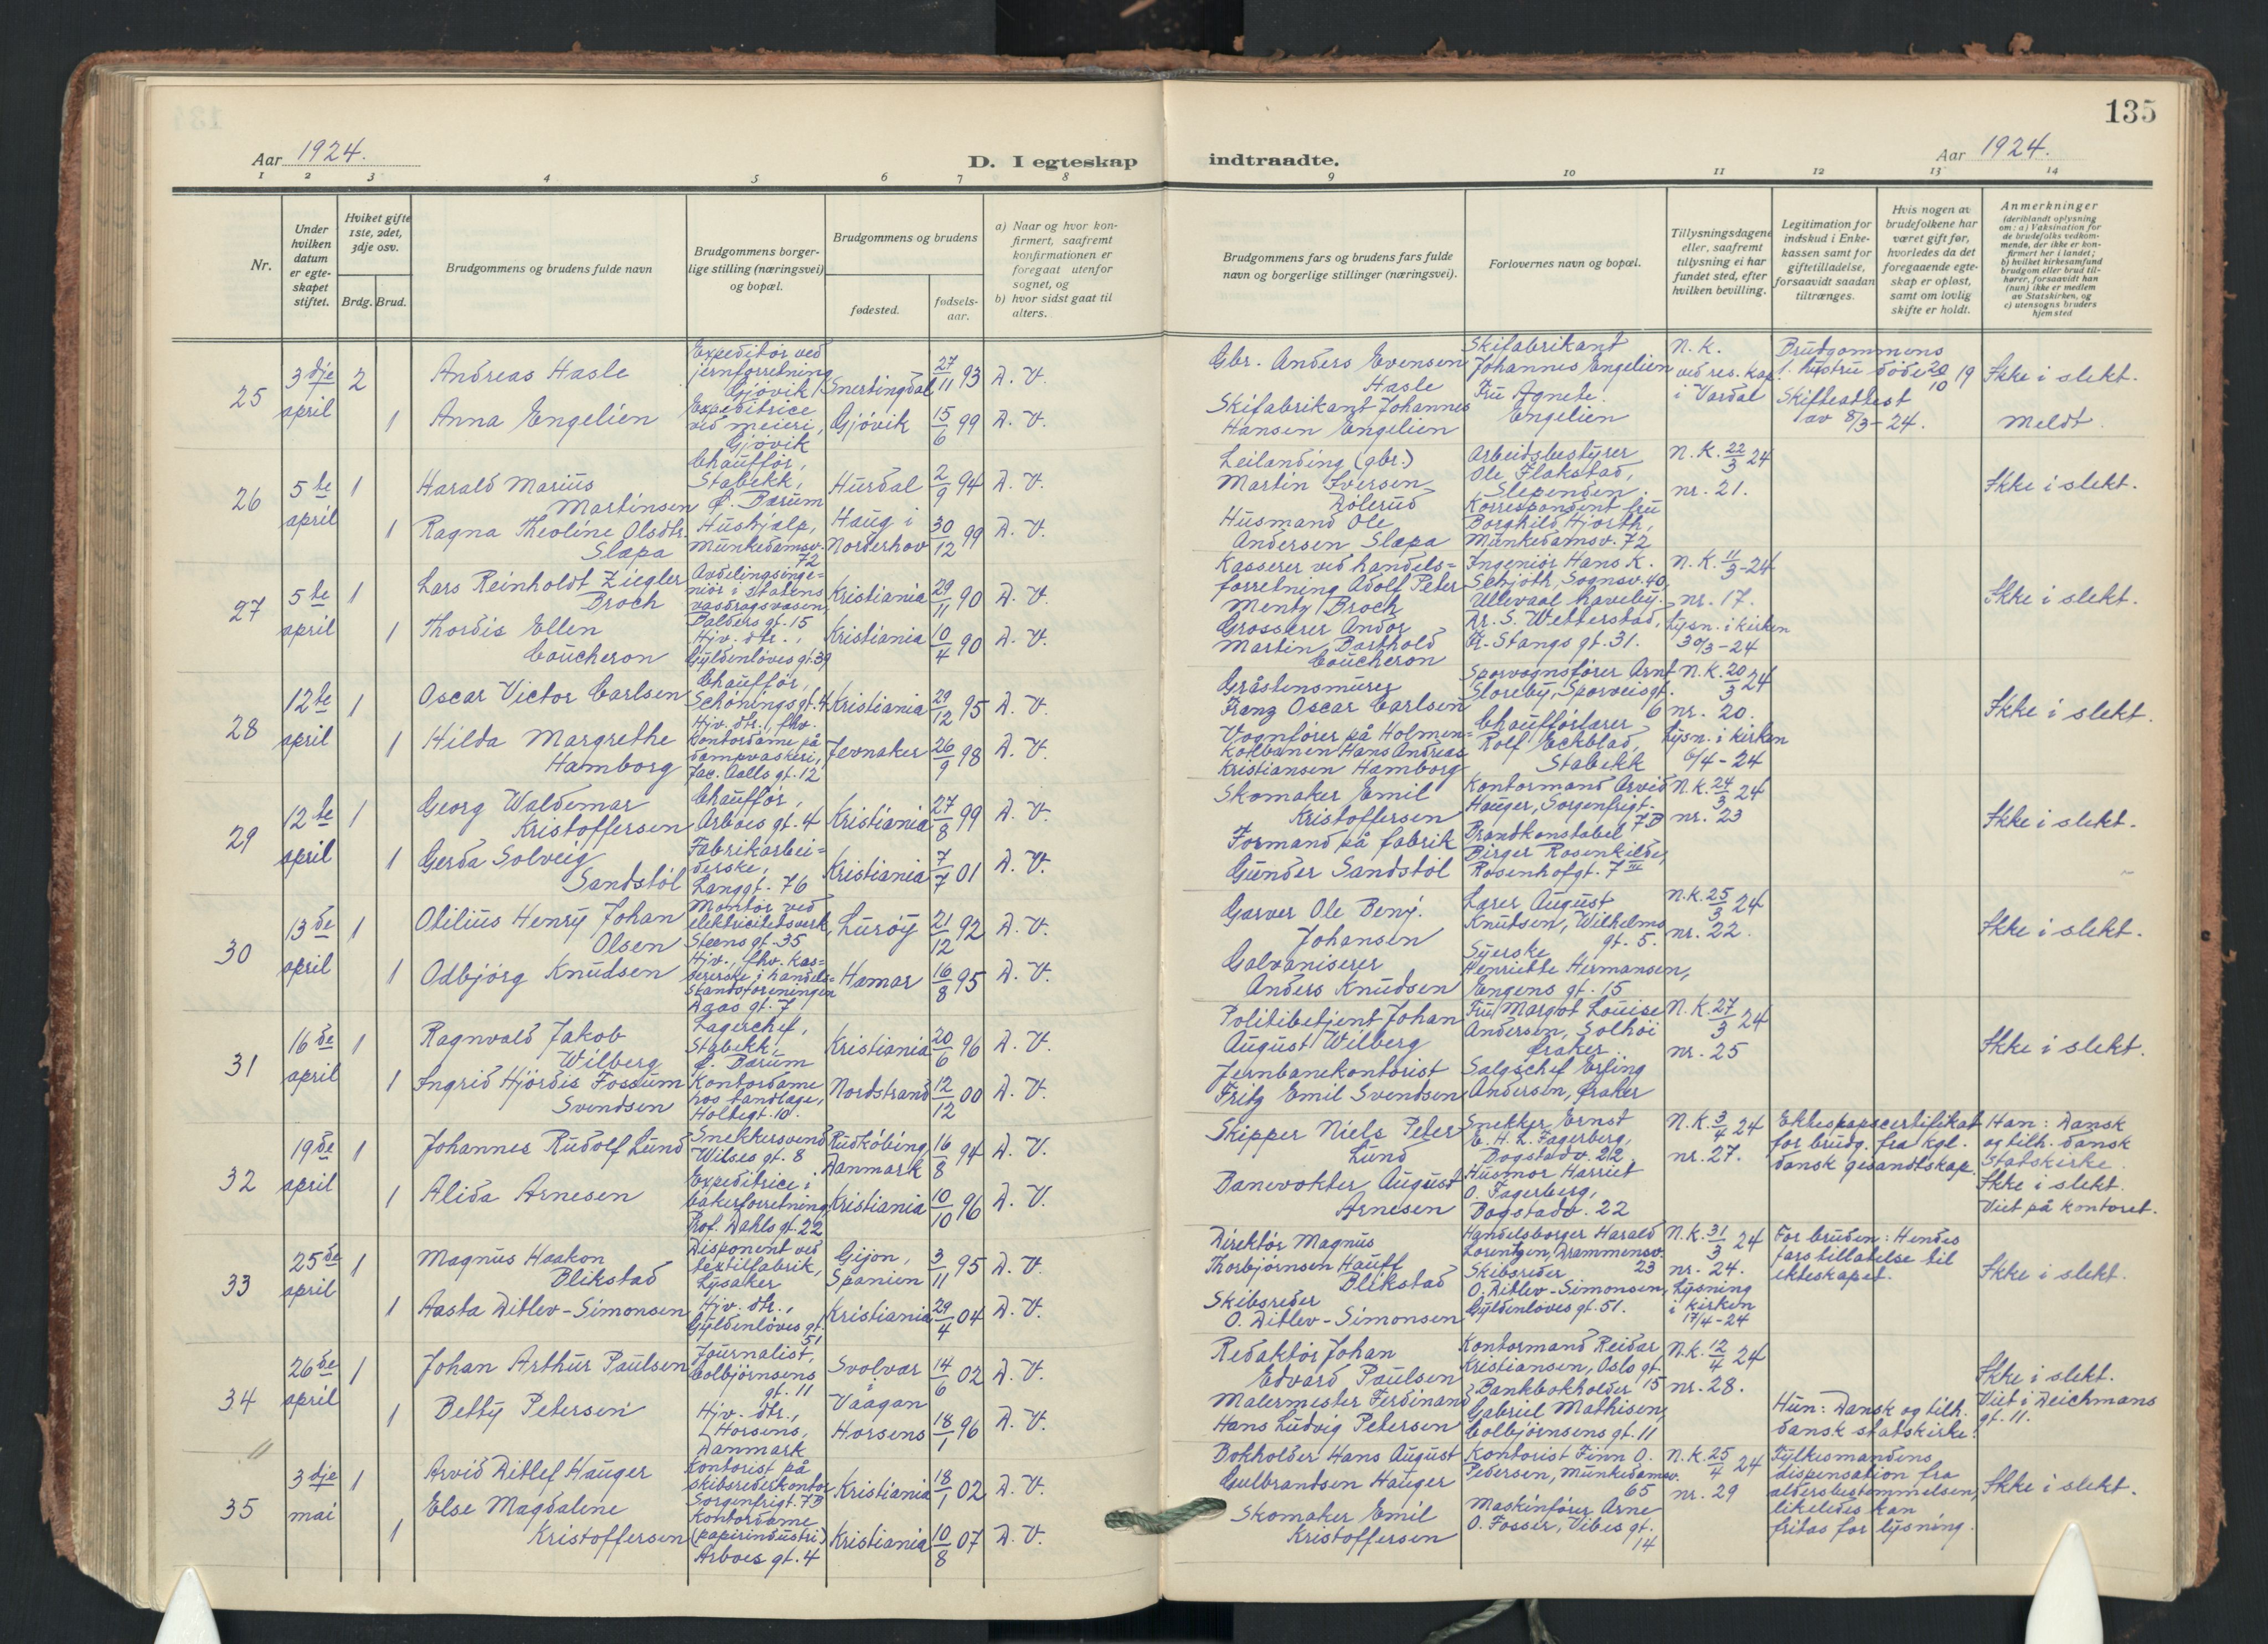 135
Aar 1924.
D. I egteskap
indtraadte.
Aar 1924.
1 2 3 4 5 6 7 8 9 10 11 12 13 14
Nr.
Under hvilken datum er egte-skapet stiftet.
Hviket gifte 1ste, 2det, 3dje osv.
Brdg. Brud.
Brudgommens og brudens fulde navn
Brudgommens borger-lige stilling (næringsvei) og bopæl.
Brudgommens og brudens
fødested.
fødsels-aar.
a) Naar og hvor kon-firmert, saafremt konfirmationen er foregaat utenfor sognet, og
b) hvor sidst gaat til alters.
Brudgommens fars og brudens fars fulde navn og borgerlige stillinger (næringsvei).
Forlovernes navn og bopæl.
Tillysningsdagene eller, saafremt tillysning ei har fundet sted, efter hvilken bevilling.
Legitimation for indskud i Enke-kassen samt for giftetilladelse, forsaavidt saadan tiltrænges.
Hvis nogen av brudefolkene har været gift før, hvorledes da det foregaaende egte-skap er opløst, samt om lovlig skifte er holdt.
Anmerkninger
(deriblandt oplysning om: a) Vaksination for de brudefolks vedkom-mende, der ikke er kon-firmert her i landet; b) hvilket kirkesamfund brudgom eller brud til-hører, forsaavidt han (hun) ikke er medlem av Statskirken, og c) utensogns bruders hjemsted
25
3dje april
2
Andreas Hasle
Expeditør ved jernforretning Gjøvik
Snertingdal
27/11 93
D. V.
Gbr. Anders Evensen Hasle
Skifabrikant Johannes Engelien
N.K. ved res. kap. i Vardal
Brudgommens 1. hustru døde 20/10 19
Skifteattest av 8/3-24.
Ikke i slekt.
1
Anna Engelien
Expeditrice ved meieri, Gjøvik
Gjøvik
15/6 99
D. V.
Skifabrikant Johannes Hansen Engelien
Fru Agnete Engelien
Meldt.
26
5te april
1
Harald Marius Martinsen
Chauffør, Stabekk, Ø. Bærum
Hurdal
2/9 94
D. V.
Leilending (gbr.) Martin Iversen Dølerud
Arbeidsbestyrer Ole Flakstad, Slependen
N.K. 22/3 24
nr. 21.
Ikke i slekt.
1
Ragna Theoline Olsdtr. Slæpa
Hushjælp, Munkedamsv. 72
Haug i Norderhov
30/12 99
D. V.
Husmand Ole Andersen Slæpa
Korrespondent fru Borghild Hjorth, Munkedamsv. 72
27
5te april
1
Lars Reinholdt Ziegler Broch
Avdelingsinge=niør i Statens vasdragsvæsen, Balders gt. 15
Kristiania
29/11 90
D. V.
Kasserer ved handels=forretning Adolf Peter Mentz Broch
Ingeniør Hans K. Schjøth, Sognsv. 40, Ullevaal haveby.
N.K. 11/3-24
nr. 17.
Ikke i slekt.
1
Thordis Ellen Coucheron
Hjv. dtr., Gyldenløves gt. 39
Kristiania
10/4 90
D. V.
Grosserer Andor Martin Barthold Coucheron
Dr. S. Wetterstad, Fr. Stangs gt. 31.
Lysn. i kirken 30/3-24
28
12te april
1
Oscar Victor Carlsen
Chauffør, Schøningsgt. 4
Kristiania
29/12 95
D. V.
Gråstensmurer Franz Oscar Carlsen
Sporvognsfører Arnt Storeby, Sporveisgt. 6
N.K. 20/3 24
nr. 20.
Ikke i slekt.
1
Hilda Margrethe Hamborg
Hjv. dtr., fhv. kontordame på dampvaskeri, Jac. Aalls gt. 12
Jevnaker
26/9 98
D. V.
Vognfører på Holmen=kolbanen Hans Andreas Kristiansen Hamborg
Chaufførlærer Rolf Eckblad, Stabekk
Lysn. i kirken 6/4-24
29
12te april
1
Georg Waldemar Kristoffersen
Chauffør, Arboes gt. 4
Kristiania
27/8 99
D. V.
Skomaker Emil Kristoffersen
Kontormand Arvid Hauger, Sorgenfrigt. 7B
N.K. 24/3 24
nr. 23
Ikke i slekt.
1
Gerda Solveig Sandstøl
Fabrikarbei=derske, Langgt. 76
Kristiania
7/7 01
D. V.
Formand på fabrik Gunder Sandstøl
Brandkonstabel Birger Rosenkilde, Rosenhofgt. 7 III
30
13de april
1
Otilius Henry Johan Olsen
Montør ved elektricitetsverk, Steens gt. 35
Lurøy
21/12 92
D. V.
Garver Ole Benj. Johansen
Lærer August Knudsen, Wilhelms gt. 5.
N.K. 25/3 24
nr. 22.
Ikke i slekt.
1
Odbjørg Knudsen
Hjv., fhv. kas=sererske i handels=standsforeningen Daas gt. 7
Hamar
16/8 95
D. V.
Galvaniserer Anders Knudsen
Syerske Henriette Hermansen, Engens gt. 15
31
16de april
1
Ragnvald Jakob Wilberg
Lagerchef, Stabekk, Ø. Bærum
Kristiania
20/6 96
D. V.
Politibetjent Johan August Wilberg
Fru Margot Louise Andersen, Solhøi Øraker
N.K. 27/3 24
nr. 25
Ikke i slekt.
1
Ingrid Hjørdis Fossum Svendsen
Kontordame hos tandlæge, Holtegt. 10.
Nordstrand
12/12 00
D. V.
Jernbanekontorist Fritz Emil Svendsen
Salgschef Erling Andersen, Øraker
32
19de april
1
Johannes Rudolf Lund
Snekkersvend Wilses gt. 8
Rudkøbing, Danmark
16/8 94
D. V.
Skipper Niels Peter Lund
Snekker Ernst C. H. L. Fagerberg, Bogstadv. 22
N.K. 3/4 24
nr. 27.
Ekteskapscertifikat for brudg. fra kgl. dansk gesandtskap.
Han: Dansk og tilh. dansk statskirke.
Ikke i slekt.
Viet på kontoret.
1
Alida Arnesen
Expeditrice i bakerforretning, Prof. Dahls gt. 22
Kristiania
10/10 96
D. V.
Banevokter August Arnesen
Husmor Harriet O. Fagerberg, Bogstadv. 22
33
25de april
1
Magnus Haakon Blikstad
Disponent ved textilfabrik, Lysaker
Gijon, Spanien
3/11 95
D. V.
Direktør Magnus Thorbjørnsen Hauff Blikstad
Handelsborger Harald Lorentzen, Drammensv. 23
N.K. 31/3 24
nr. 24.
For bruden: Hendes fars tillatelse til ekteskapet.
Ikke i slekt.
1
Aasta Ditlev-Simonsen
Hjv. dtr., Gyldenløves gt. 51
Kristiania
29/4 04
D. V.
Skibsreder O. Ditlev-Simonsen
Skibsreder O. Ditlev-Simonsen, Gyldenløves gt. 51.
Lysning i kirken 17/4-24
34
26de april
1
Johan Arthur Paulsen
Journalist, Colbjørnsens gt. 11
Svolvær i Vaagan
14/6 02
D. V.
Redaktør Johan Edvard Paulsen
Kontormand Reidar Kristiansen, Oslo gt. 15
N.K. 12/4 24
nr. 28.
Ikke i slekt.
Viet i Deichmans gt. 11.
1
Betty Petersen
Hjv. dtr., Horsens, Danmark
Horsens
18/1 96
D. V.
Malermester Ferdinand Hans Ludvig Petersen
Bankbokholder Gabriel Mathisen, Colbjørnsens gt. 11
Hun: Dansk og tilh. dansk statskirke.
35
3dje mai
1
Arvid Ditlef Hauger
Kontorist på skibsrederkontor Sorgenfrigt. 7B
Kristiania
18/1 02
D. V.
Bokholder Hans August Gulbrandsen Hauger
Kontorist Finn O. Pedersen, Munkedamsv. 65
N.K. 25/4 24
nr. 29
Fylkesmandens dispensation fra aldersbestemmelsen, likeledes kan fritas for lysning.
Ikke i slekt.
1
Else Magdalene Kristoffersen
Kontordame (papirindustri) Arboes gt. 4
Kristiania
10/8 07
D. V.
Skomaker Emil Kristoffersen
Maskinfører Arne O. Fosser, Vibes gt. 14